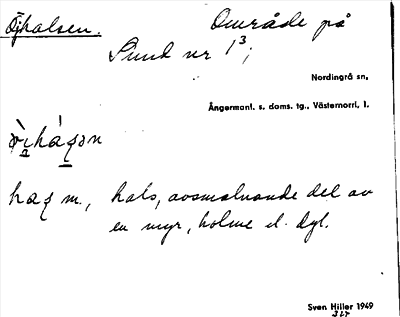 Öjhalsen. Område på
Sund nr 1³;
Nordingrå sn,
Ångermanl. s. doms. tg., Västernorrl. l.
m., hals, avsmalnande del av
en myr, holme el. dyl.
Sven Hiller 1949